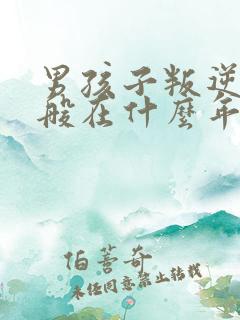 男孩子叛逆
般在什麼年
伯善奇
未经同意禁止转载